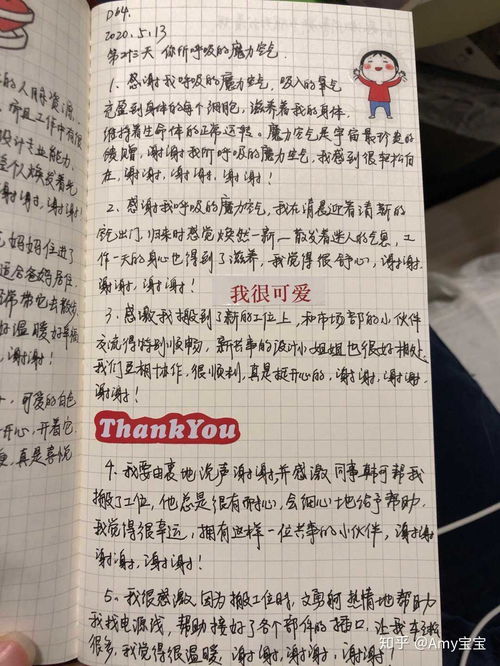 D64.
2020.5.13
你所呼吸的魔力空气
1、感谢我呼吸的魔力空气,吸入的氧气
充盈到身体的每个细胞,滋养着我的身体,
维持着生命体的正常运转。魔力空气是宇宙最珍贵的
馈赠,谢谢我所呼吸的魔力空气,我感到很轻松自
在,谢谢,谢谢,谢谢,谢谢!
2、感谢我呼吸的魔力空气,我在清晨迎着清新的
空气出门,归来时感觉焕然一新,散发着迷人的气息,工
作一天的身心也得到了滋养,我觉得很舒心,谢谢,谢谢,
谢谢,谢谢!
我很可爱
3、感激我搬到了新的工位上,和市场部的小伙伴
交流得特别顺畅,新共事的设计小姐姐也很好相处,
我们互相协作,很顺利,真是挺开心的,谢谢,谢谢,
谢谢!
ThankYou
4、我要由衷地说声谢谢,并感激同事韩可帮我
搬了工位,他总是很有耐心,会细心地给予帮助,
我觉得很幸运,拥有这样一位共事的小伙伴,谢谢,
谢谢,谢谢!
5、我很感激因为搬工位时,文勇哥热情地帮助
我找电源线,帮助接好了各个部件的插口,让我
很多,我觉得很温暖,谢谢,谢谢,谢谢!
的人脉资源,
设计专业能力,
个人焕发着光
谢谢,谢谢
妈妈住进了
适合爸妈居住,
常带它去散步,
好温暖好幸福
谢谢!
可爱的白色
开心,开着它,
真是喜悦
知乎 @Amy宝宝